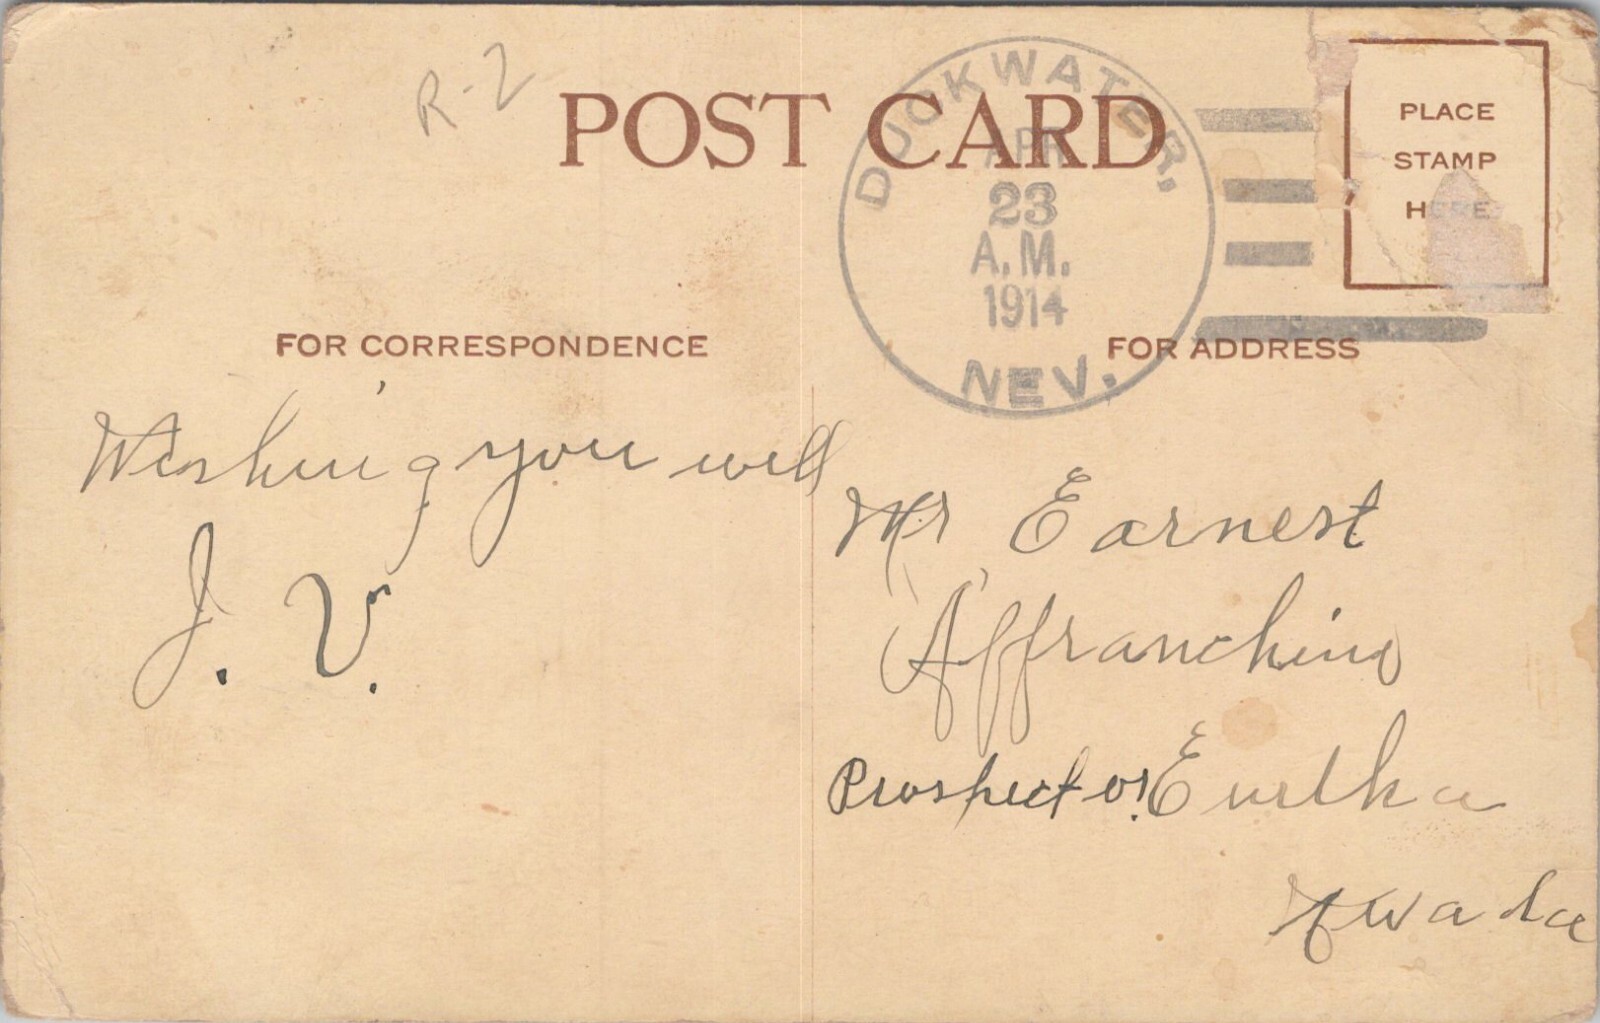 R-2
POST CARD
DUCKWATER,
APR
23
A.M.
1914
NEV.
PLACE
STAMP
HERE
FOR CORRESPONDENCE
FOR ADDRESS
Wishing you well
J. V.
Mr Earnest
Affranchino
Prospector. Eureka
Nevada